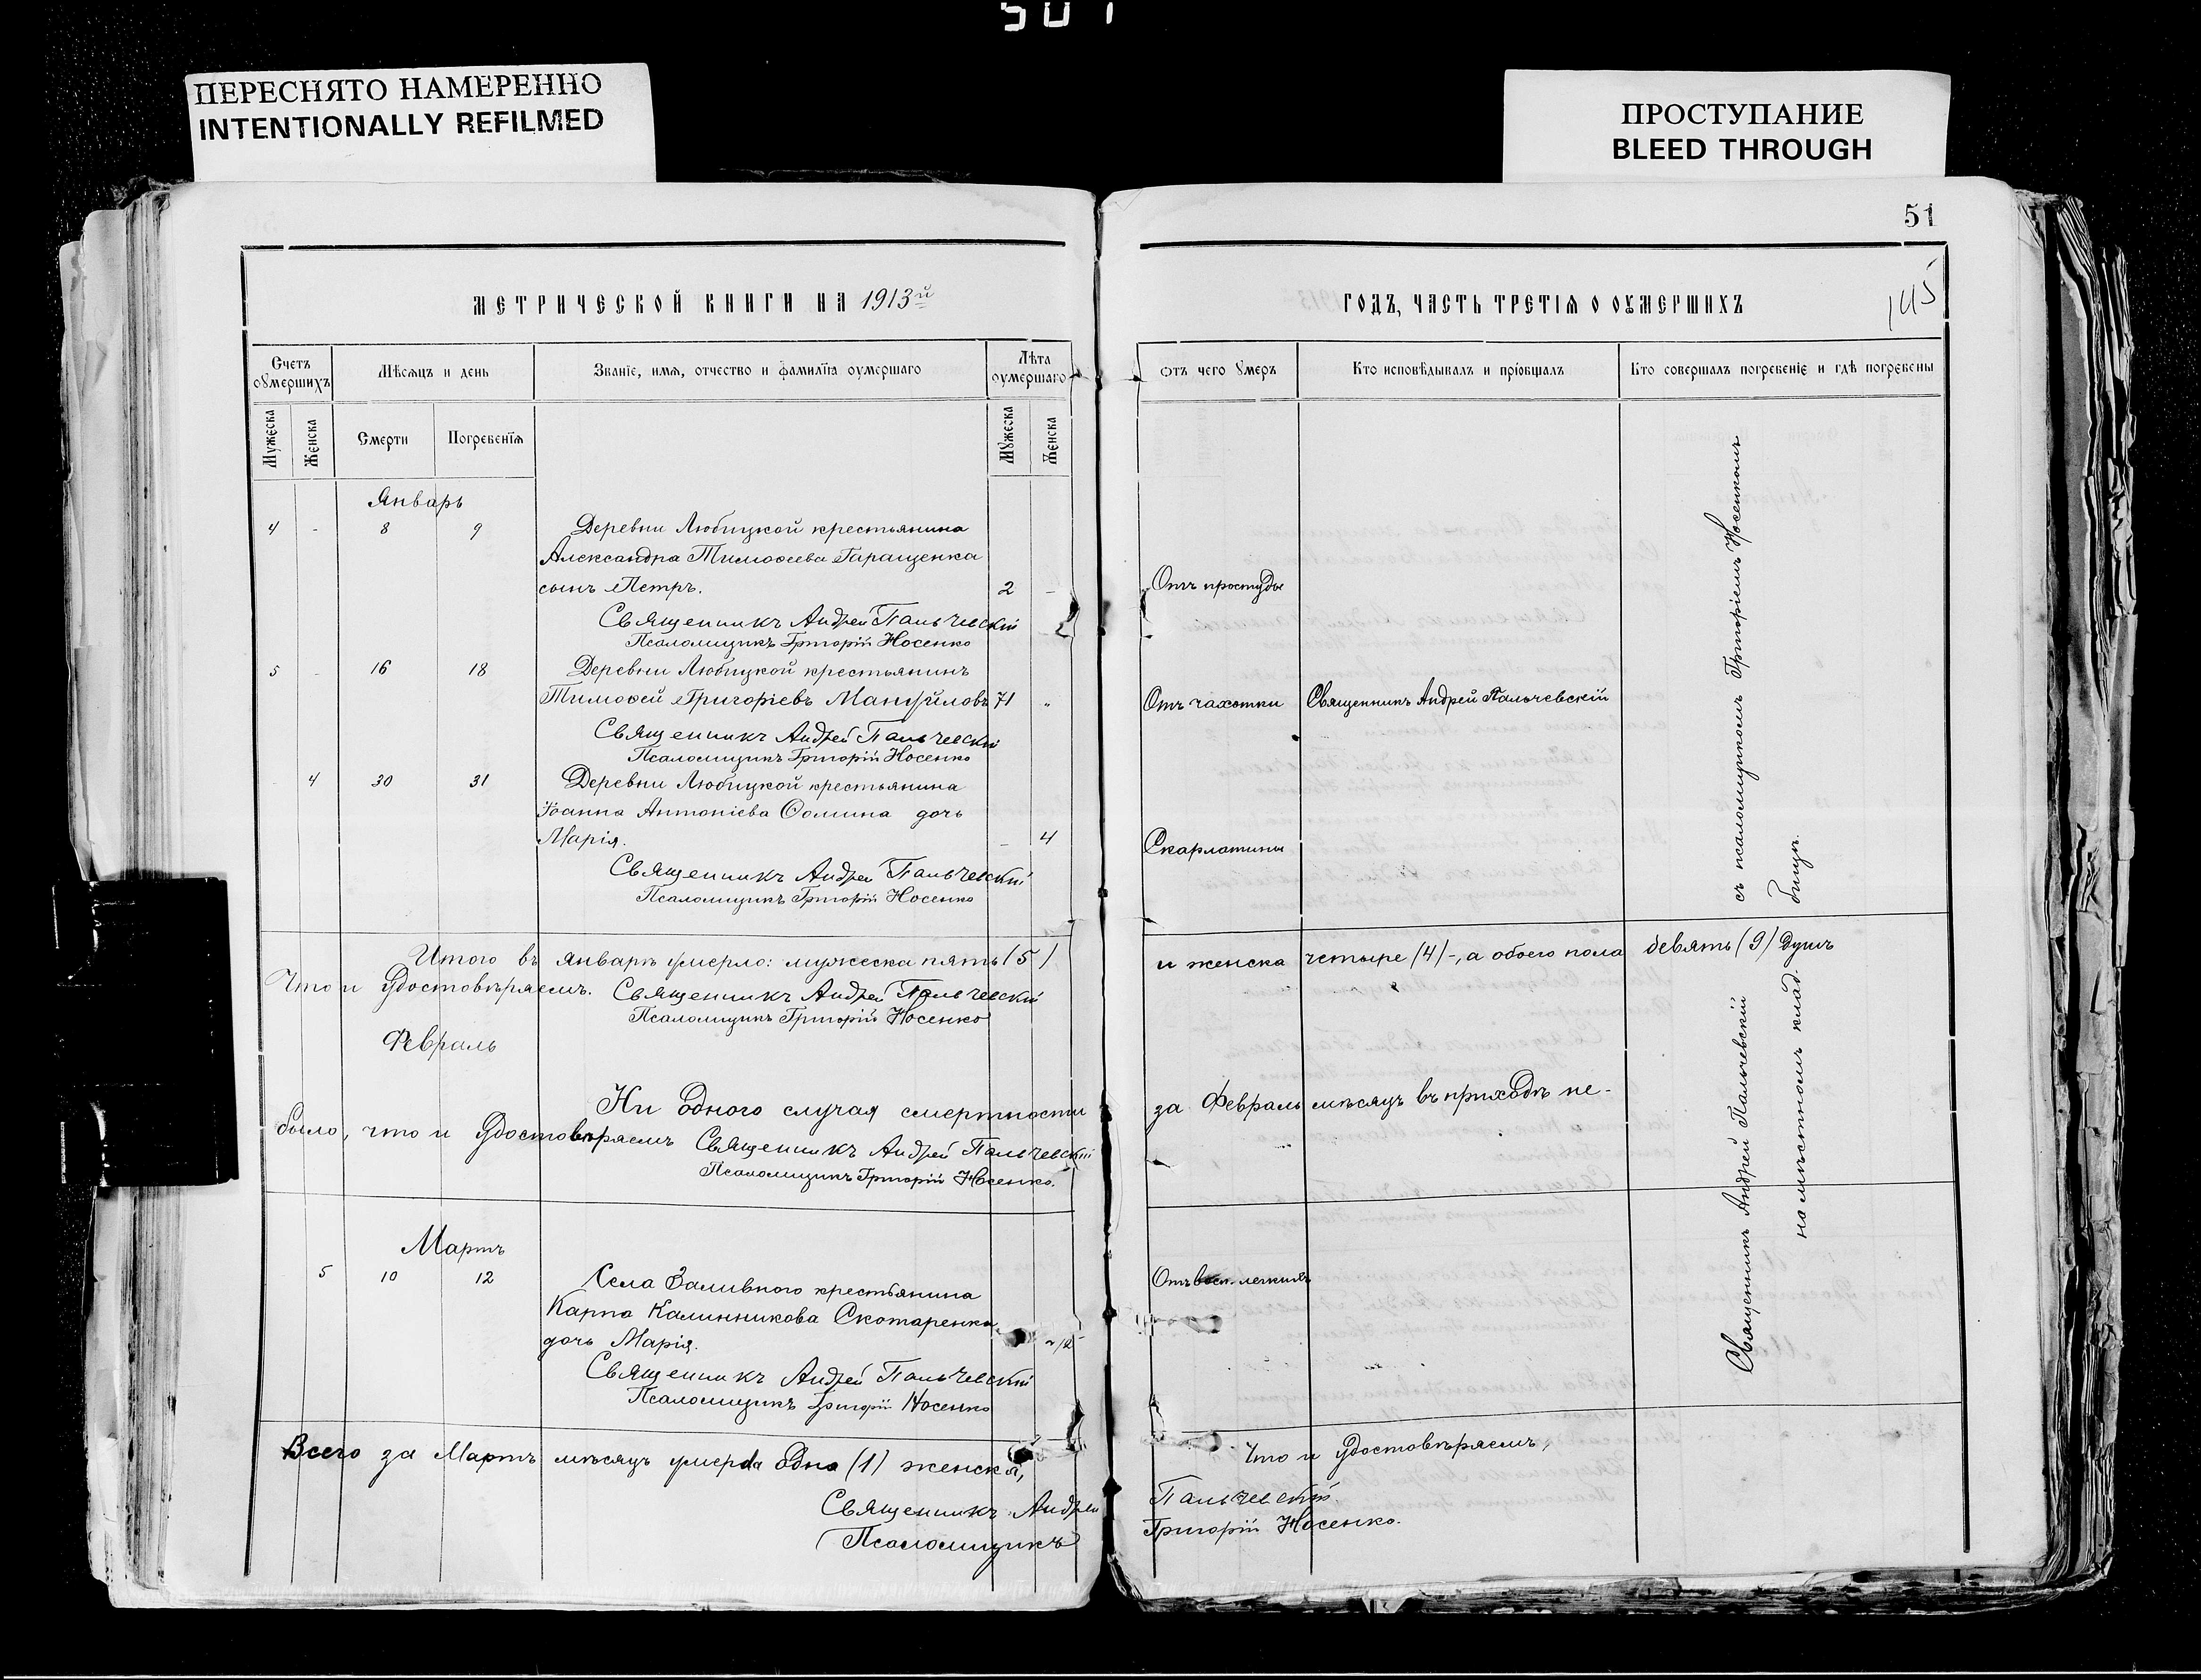 501
ПЕРЕСНЯТО НАМЕРЕННО
INTENTIONALLY REFILMED
ПРОСТУПАНИЕ
BLEED THROUGH
51
145
МЕТРИЧЕСКОЙ КНИГИ НА 1913й
Счетъ оумершихъ
Мѣсяцъ и день
Званіе, имя, отчество и фамилїа оумершаго
Лѣта оумершаго
Мужеска
Женска
Смерти
Погребенїя
Мужеска
Женска
Январь
4 - 8 9 Деревни Любицкой крестьянина
Александра Тимоѳеева Таращенка
сынъ Петръ. 2 -
Священникъ Андрей Пальчевскій
Псаломщикъ Григорій Носенко
5 - 16 18 Деревни Любицкой крестьянинъ
Тимоѳей Григоріевъ Мануйловъ 71 "
Священникъ Андрей Пальчевскій
Псаломщикъ Григорій Носенко
- 4 30 31 Деревни Любицкой крестьянина
Іоанна Антоніева Ѳомина дочь
Марія. - 4
Священникъ Андрей Пальчевскій
Псаломщикъ Григорій Носенко
Итого въ Январѣ умерло: мужеска пять (5)
Что и удостовѣряемъ. Священникъ Андрей Пальчевскій
Псаломщикъ Григорій Носенко
Февраль
Ни одного случая смертности
было, что и удостовѣряемъ Священникъ Андрей Пальчевскій
Псаломщикъ Григорій Носенко.
Мартъ
5 10 12 Села Заливного крестьянина
Карпа Калинникова Скотаренка
дочь Марія.
Священникъ Андрей Пальчевскій
Псаломщикъ Григорій Носенко
Всего за Мартъ мѣсяцъ умерла одна (1) женска,
Священникъ Андрей
Псаломщикъ
ГОДЪ, ЧАСТЬ ТРЕТІЯ О ОУМЕРШИХЪ
Отъ чего умеръ
Кто исповѣдывалъ и прїобщалъ
Кто совершалъ погребенїе и гдѣ погребены
Отъ простуды
Отъ чахотки Священникъ Андрей Пальчевскій
Скарлатины
и женска четыре (4) -, а обоего пола девять (9) душъ
за Февраль мѣсяцъ въ приходѣ не-
Отъ восп. легкихъ
Что и удостовѣряемъ,
Пальчевскій.
Григорій Носенко.
Священникъ Андрей Пальчевскій съ псаломщикомъ Григоріемъ Носенкомъ
на мѣстномъ кладбищѣ.